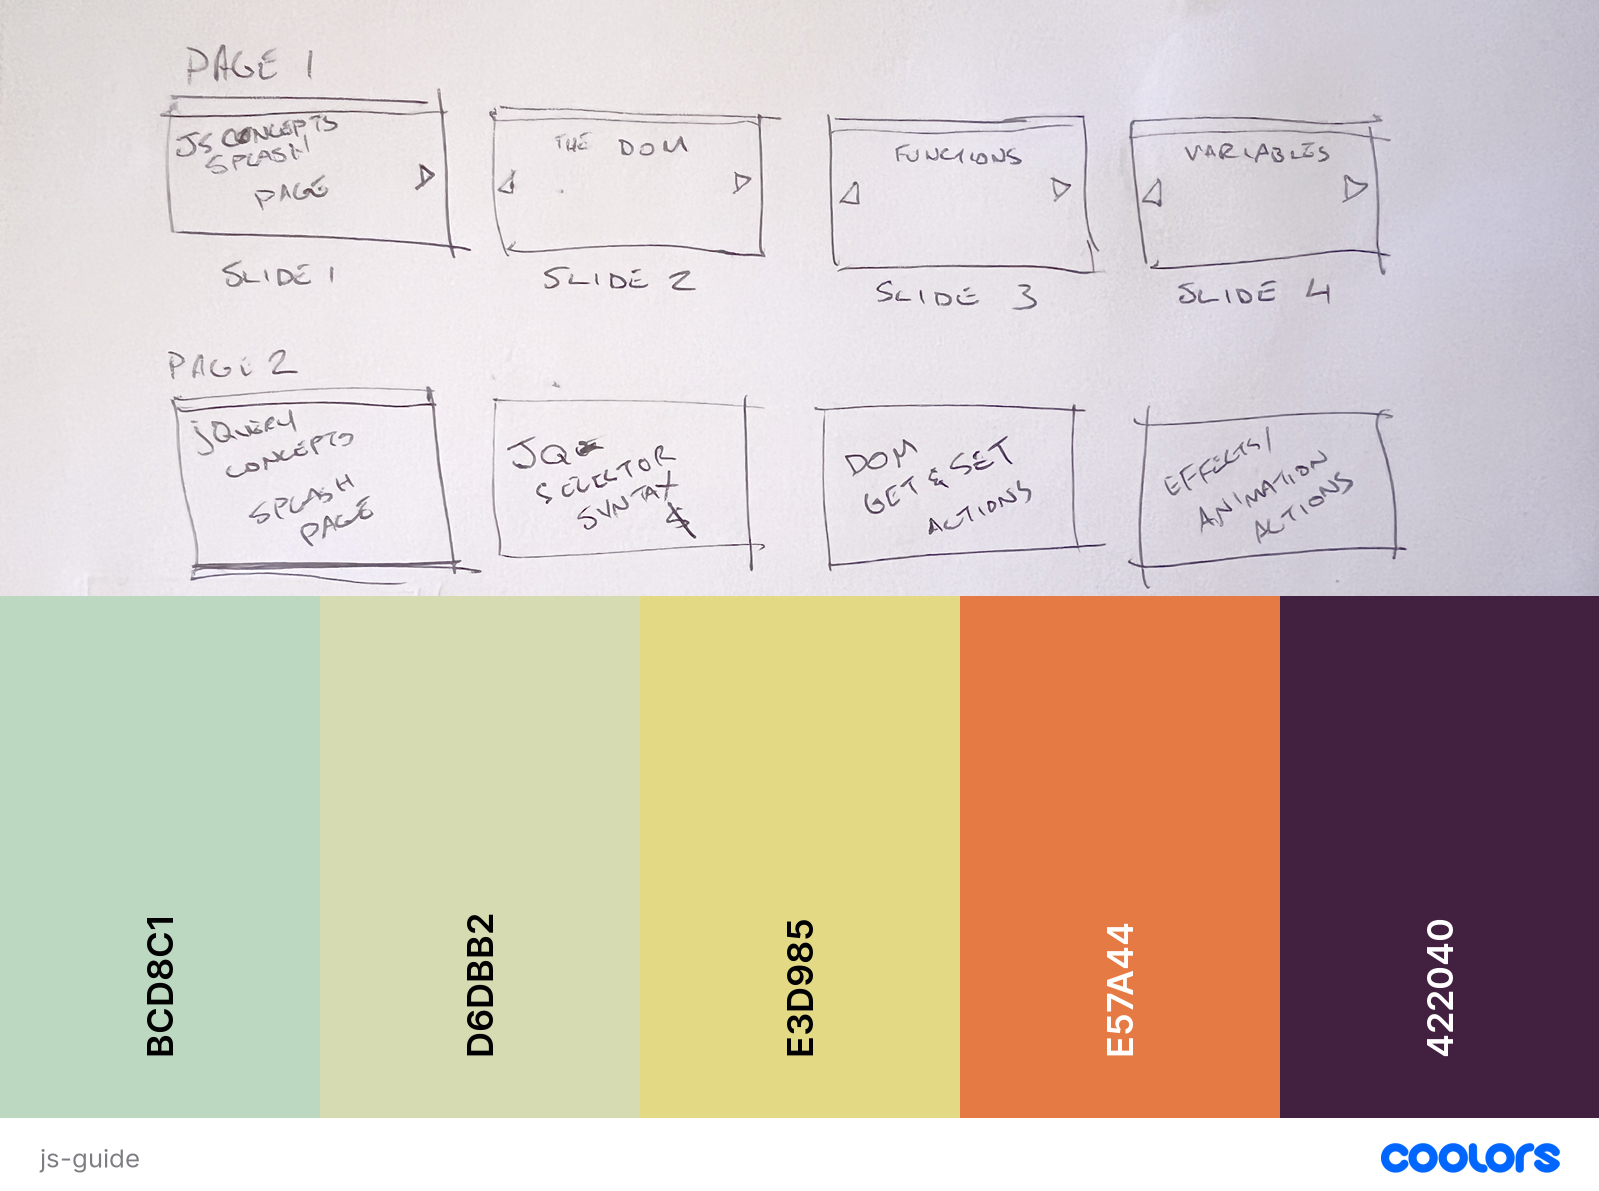 PAGE 1
JS CONCEPTS
SPLASH
PAGE
SLIDE 1
THE DOM
SLIDE 2
FUNCTIONS
SLIDE 3
VARIABLES
SLIDE 4
PAGE 2
jQUERY
CONCEPTS
SPLASH
PAGE
JQ
SELECTOR
SYNTAX
$
DOM
GET & SET
ACTIONS
EFFECTS/
ANIMATION
ACTIONS
BCD8C1
D6DBB2
E3D985
E57A44
422040
js-guide
coolors